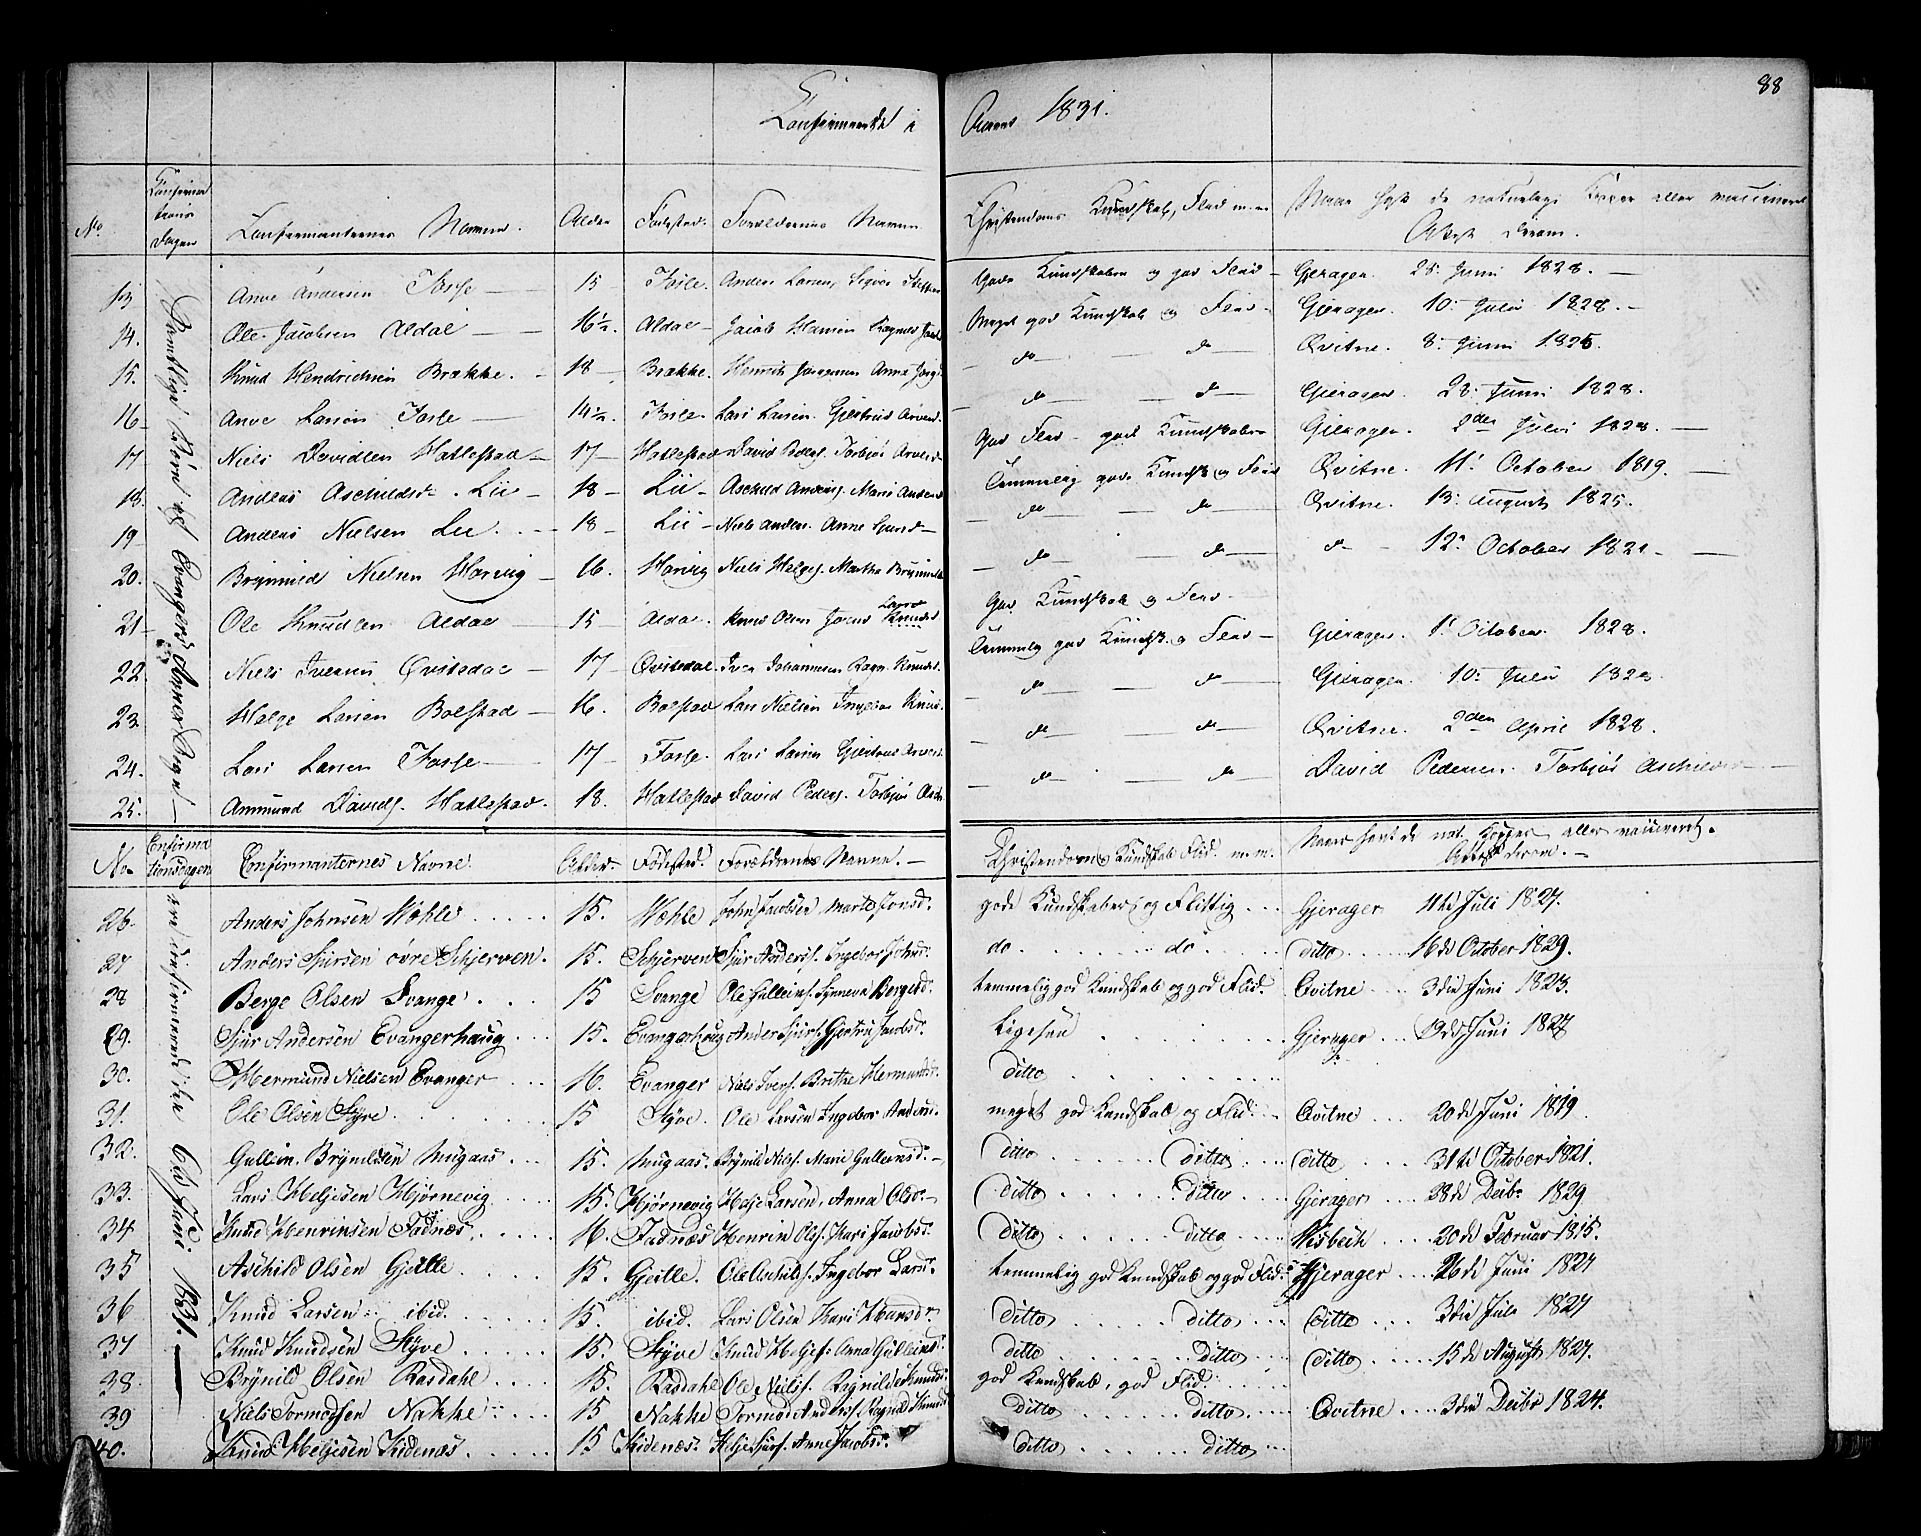 88
Confirmerede i Aaret 1831.
No Confirmationsdagen Confirmanternes Navne. Alder Fødested. Forældrenes Navne. Christendoms Kundskab, Flid m.m Naar havt de naturlige Kopper eller vaccineret Attest derom.
13 Arve Andersen Fosse 15 Fosse. Anders Larsen, Gode Kundskaber og god Flid Gjerager. 28. Juni 1828.
14. Ole Jacobsen Aldal 16½. Aldal Jacob Hansen Ragner Meget god Kundskab og Flid Gjerager. 10. Julii 1828.
15. Knud Hendrichsen Brække. 18 Brække. Henrik Anna do do Qvitne. 8. Juni 1825.
16 Arve Larsen Fosse 14½. Fosse. Lars Larsen. Giertrud Arvesd. do do Gjerager. 28. Juni 1828.
17 Niels Davidsen Hatlestad 17 Hatlestad David Peders. Torbjør God Flid god Kundskaber Gjerager. 2den Julii 1828.
18. Anders Aschildsen Lii 18 Lii Aschild Anders. Mari Anders Temmelig gode Kundsk. og Flid Qvitne. 11. October 1819.
19 Anders Nielsen Lii 18 Lii Niels Anders. Anne do do Qvitne. 13. August 1825.
20. Brynnild Nielsen Horvig 16. Horvig Niels Helges. Martha Brynnild do do do 12. October 1821
21 Ole Knudsen Aldal 15 Aldal. Knud Olsen Knuds God Kundskab og Flid
22 Niels Iversen Qvitedal 17 Qvitedal. Iver Johannesen Ragn. Knuds. Temmelig god Kundsk. og Flid Gjerager. 1. October 1828.
23. Helge Larsen Bolstad 16. Bolstad Lars Nielsen Ingebor Knuds. do do Gjerager. 10. Julii 1828.
24. Lars Larsen Fosse 17 Fosse. Lars Larsen Giertrud Arves. do do Qvitne. 2den April 1828.
25. Ammund Davids. Hatlestad. 18. Hatlestad David Peders. Torbjør Asch. do do David Pedersen. Torbjør Aschilds
Samtlige Børn af Evangers Annex Sogn
No Confirmationsdagen Confirmanternes Navne. Alder. Fødested. Forældrenes Navne. Christendoms Kundskab Flid. m.m. Naar havt de nat. Kopper eller vaccineret. Attest derom.
26. Anders Johnsen Mæhle 15. Mæhle John Jacobsen Marte Jonsd. gode Kundskaber og Flittig Gjerager 11te Juli 1827.
27 Anders Sjursen øvre Schjerven. 15. Schjerven Sjur Anders. Ingebor Johnd. do. do. ditto 16de October 1829.
28 Berge Olsen Evange 15 Evange Ole Gulleins. Synneva Bergesd. temmelig god Kundskab og god Flid. Qvitne 3die Juni 1823.
29. Sjur Andersen Evangerhaug 15. Evangerhaug Anders Sjurs. Gjertru Jacobsd. Ligesaa Gjerager 19de Juni 1827
30. Hermund Nielsen Evanger 16. Evanger Niels Ivers. Brithe Hermundsd. ditto
31. Ole Olsen Styve 15 Styve. Ole Larsen Ingebor Andersd. meget god Kundskab og Flid Qvitne 20de Juni 1819.
32. Gullein. Brynildsen Mugaas 15. Mugaas. Brynild Niels. Marie Gulleinsd. ditto ditto ditto 31te October 1821.
33. Lars Helgesen Hjørnevig 15. Hjørnevig Helje Larsen, Anna Olsd. ditto ditto Gjerager 28de Decbr. 1829
34 Knud Henrinsen Fadnæs 16. Fadnæs Henrin Ols. Kari Jacobsd. ditto ditto Wisbech 20de Februar 1815.
35 Aschild Olsen Gjelle 15. Gjelle. Ole Aschilds. Ingebor Larsd. temmelig god Kundskab og god Flid. Gjerager 26de Juni 1827
36 Knud Larsen ibid. 15. ibid. Lars Olsen Kari Hansdr ditto ditto ditto 3die Juli 1827
37 Knud Knudsen Styve 15. Styve Knud Heljes. Anna Gulleinsd. ditto ditto ditto 15de August 1827.
38. Brynild Olsen Rasdahl 15. Rasdahl Ole Niels. Ragnilde Knudsd. god Kundskab, god Flid.
39 Niels Tormodsen Nakke 15 Nakke Tormod Anders. Ragnild Knudsd ditto ditto Qvitne 3die Decbr 1824.
40. Knud Heljesen Kidenæs. 15 Kidenæs. Helje Sjurs. Anne Jacobsd. ditto ditto
ere confirmerede den 6te Juni 1831.